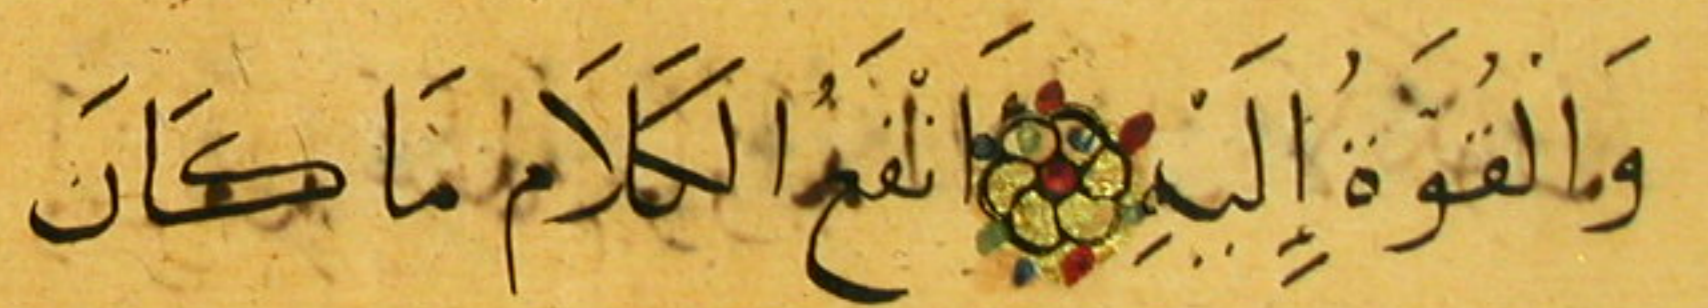 وَالْقُوَّةُ إِلَيْهِ اَنْفَعُ الكَلَامِ مَا كَانَ